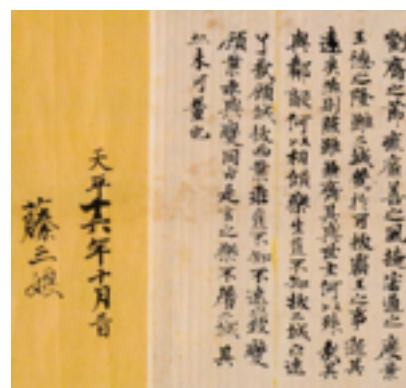 虧齊之節廢廉善之風掩宏通之度棄
王德之隆雖二城幾於可拔霸王之事逝其
遠矣然則燕雖兼齊其與世主何以殊哉其
與鄰敵何以相傾樂生豈不知拔二城之速
了哉顧城拔而業乖豈不知不速之致變
顧業乖與變同由是言之樂不屠二城其
亦未可量也
天平十六年十月三日
藤三娘